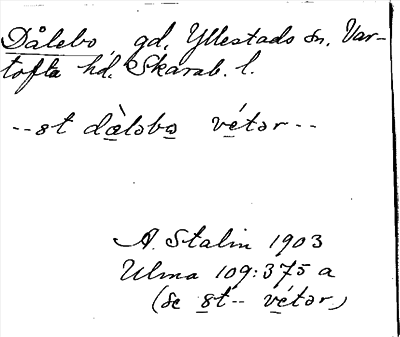 Dålebo, gd, Yllestads sn. Var-
tofta hd. Skarab. l.
--st dàləbo vétər--
A. Stalin 1903
Ulma 109:375 a
(se st-- vétər)